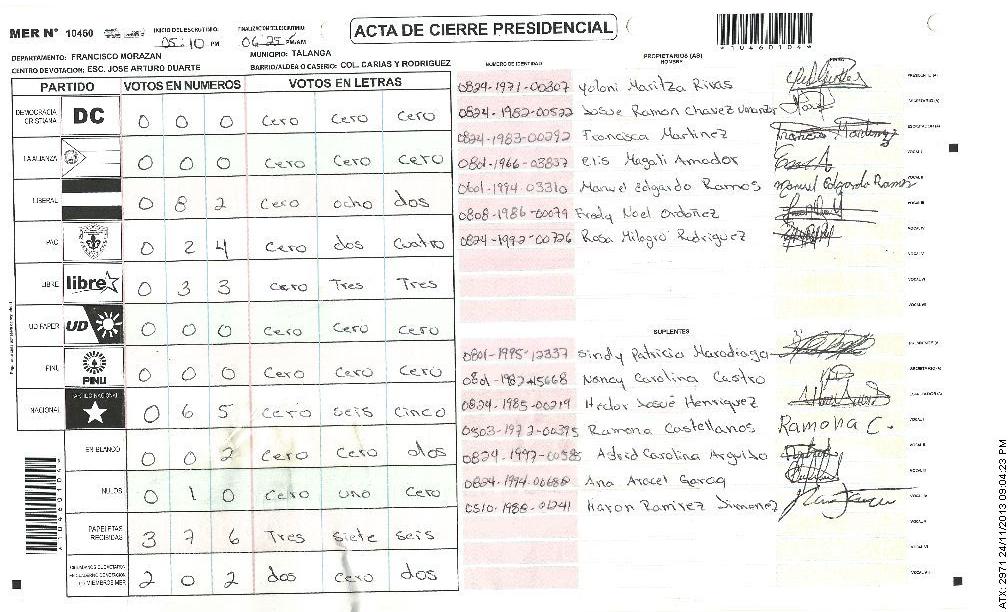 MER Nº 10460
INICIO DEL ESCRUTINIO: 05:10 PM
FINALIZACION DEL ESCRUTINIO: 06:25 PM/AM
ACTA DE CIERRE PRESIDENCIAL
*10460104*
DEPARTAMENTO: FRANCISCO MORAZAN
MUNICIPIO: TALANGA
CENTRO DE VOTACION: ESC. JOSE ARTURO DUARTE
BARRIO/ALDEA O CASERIO: COL. CARIAS Y RODRIGUEZ
PARTIDO VOTOS EN NUMEROS VOTOS EN LETRAS
DEMOCRACIA CRISTIANA DC 0 0 0 cero cero cero
LA ALIANZA 0 0 0 cero cero cero
LIBERAL 0 8 2 cero ocho dos
PAC 0 2 4 cero dos cuatro
LIBRE libre 0 3 3 cero Tres Tres
UD FAPER UD 0 0 0 cero cero cero
PINU PINU 0 0 0 cero cero cero
NACIONAL 0 6 5 cero seis cinco
EN BLANCO 0 0 2 cero cero dos
NULOS 0 1 0 cero uno cero
PAPELETAS RECIBIDAS 3 7 6 Tres siete seis
2 0 2 dos cero dos
NUMERO DE IDENTIDAD
PROPIETARIOS (AS)
NOMBRE
FIRMA
0824-1971-00307 Yoloni Maritza Rivas
0824-1982-00522 Josue Ramon Chavez
0824-1983-00292 Francisca Martinez Francisca Martinez
0801-1966-03837 Elis Magali Amador
0601-1994-03310 Manuel Edgardo Ramos Manuel Edgardo Ramos
0808-1986-00079 Fredy Noel Ordoñez
0824-1992-00726 Rosa Milagro Rodriguez
SUPLENTES
0801-1995-12337 Sindy Patricia Maradiaga
0801-1982-15668 Nancy Carolina Castro
0824-1985-00219 Hector Josue Henriquez
0503-1972-00395 Ramona Castellanos Ramona C.
0824-1997-00585 Astrid Carolina Arguijo
0824-1994-00688 Ana Aracel Garcia
0510-1988-01241 Haron Ramirez Jimenez
*10460104*
ATX: 2971 24/11/2013 09:04:23 PM